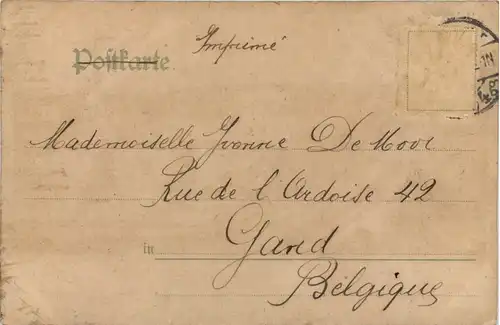 Imprimé
Postkarte
Mademoiselle Yvonne De Moor
Rue de l'Ardoise 42
in Gand
Belgique